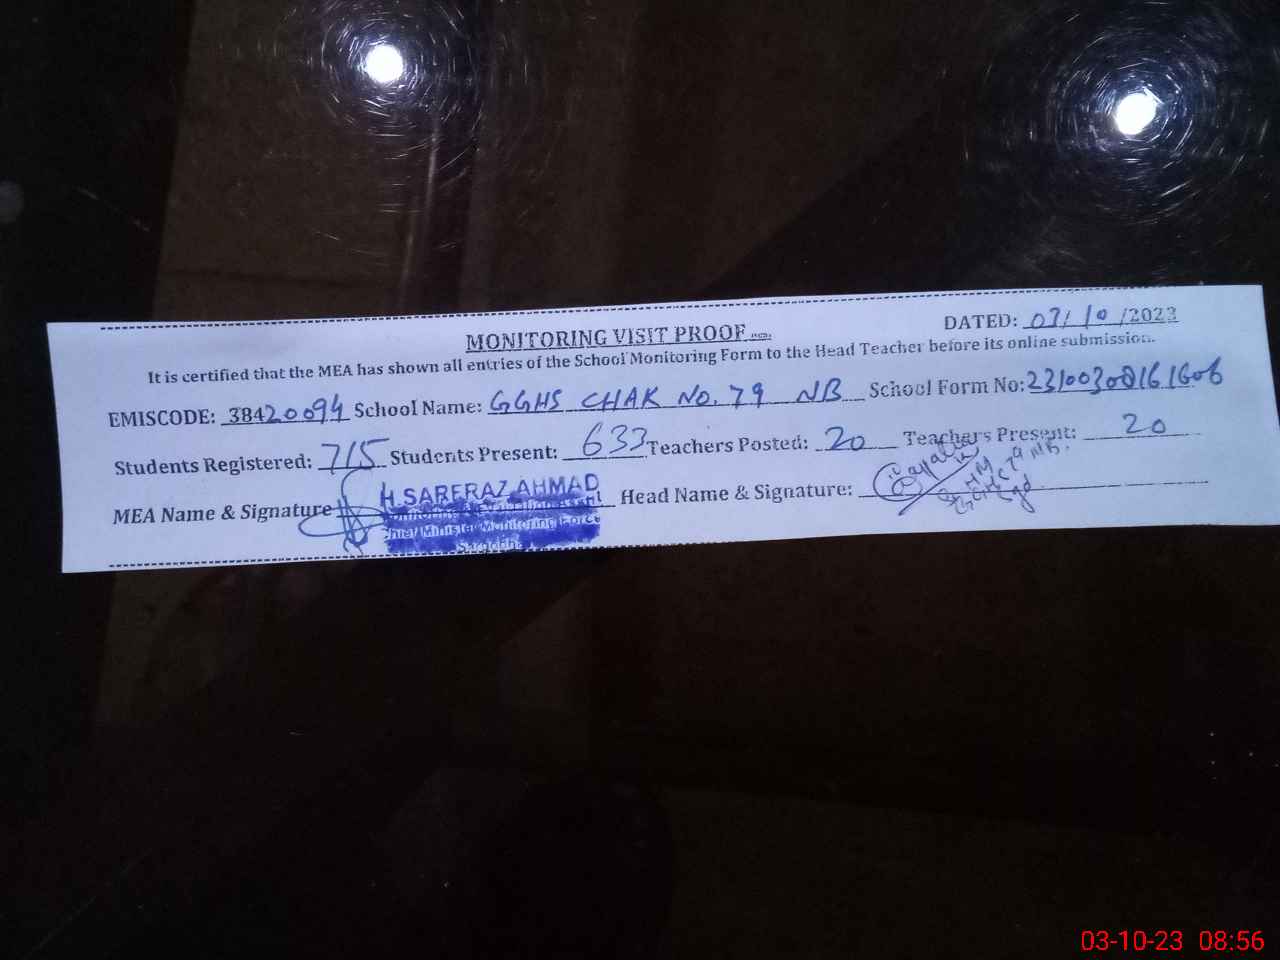 MONITORING VISIT PROOF
DATED: 03/10/2023
It is certified that the MEA has shown all entries of the School Monitoring Form to the Head Teacher before its online submission.
EMISCODE: 38420094 School Name: GGHS CHAK No. 79 NB School Form No: 231003008161606
Students Registered: 715 Students Present: 633 Teachers Posted: 20 Teachers Present: 20
MEA Name & Signature H. SARFRAZ AHMAD Head Name & Signature:
Chief Minister Monitoring Force
Sargodha
HM
GGHS 79 NB.
Sgd
03-10-23 08:56